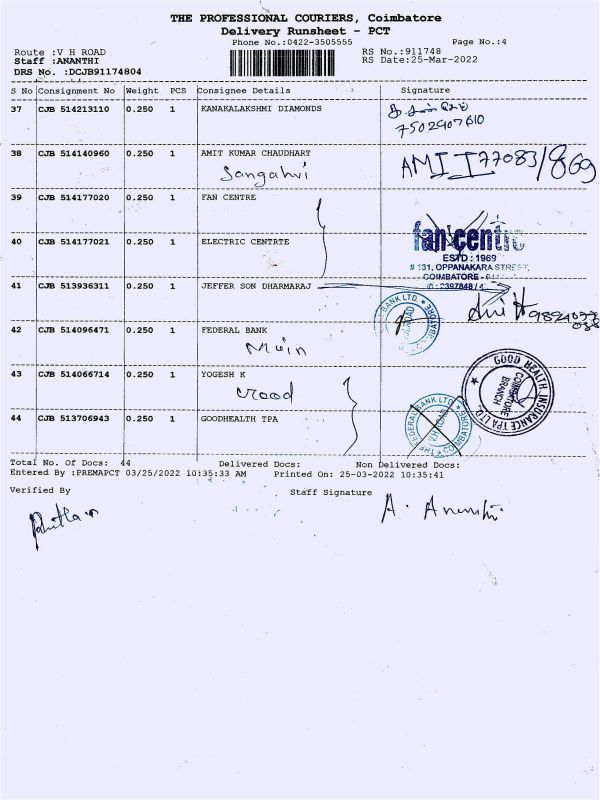 THE PROFESSIONAL COURIERS, Coimbatore
Delivery Runsheet - PCT
Phone No.:0422-3505555 Page No.:4
Route :V H ROAD RS No.:911748
Staff :ANANTHI RS Date:25-Mar-2022
DRS No. :DCJB91174804
S No Consignment No Weight PCS Consignee Details Signature
37 CJB 514213110 0.250 1 KANAKALAKSHMI DIAMONDS
7502907610
38 CJB 514140960 0.250 1 AMIT KUMAR CHAUDHART
Sangahvi
39 CJB 514177020 0.250 1 FAN CENTRE
fan centre
40 CJB 514177021 0.250 1 ELECTRIC CENTRTE
ESTD : 1969
# 131, OPPANAKARA STREET,
COIMBATORE -
41 CJB 513936311 0.250 1 JEFFER SON DHARMARAJ
42 CJB 514096471 0.250 1 FEDERAL BANK
Main
43 CJB 514066714 0.250 1 YOGESH K
GOOD HEALTH INSURANCE TPA LTD.
COIMBATORE
BRANCH
44 CJB 513706943 0.250 1 GOODHEALTH TPA
FEDERAL BANK LTD.
COIMBATORE
Total No. Of Docs: 44 Delivered Docs: Non Delivered Docs:
Entered By :PREMAPCT 03/25/2022 10:35:33 AM Printed On: 25-03-2022 10:35:41
Verified By Staff Signature
A. Ananthi